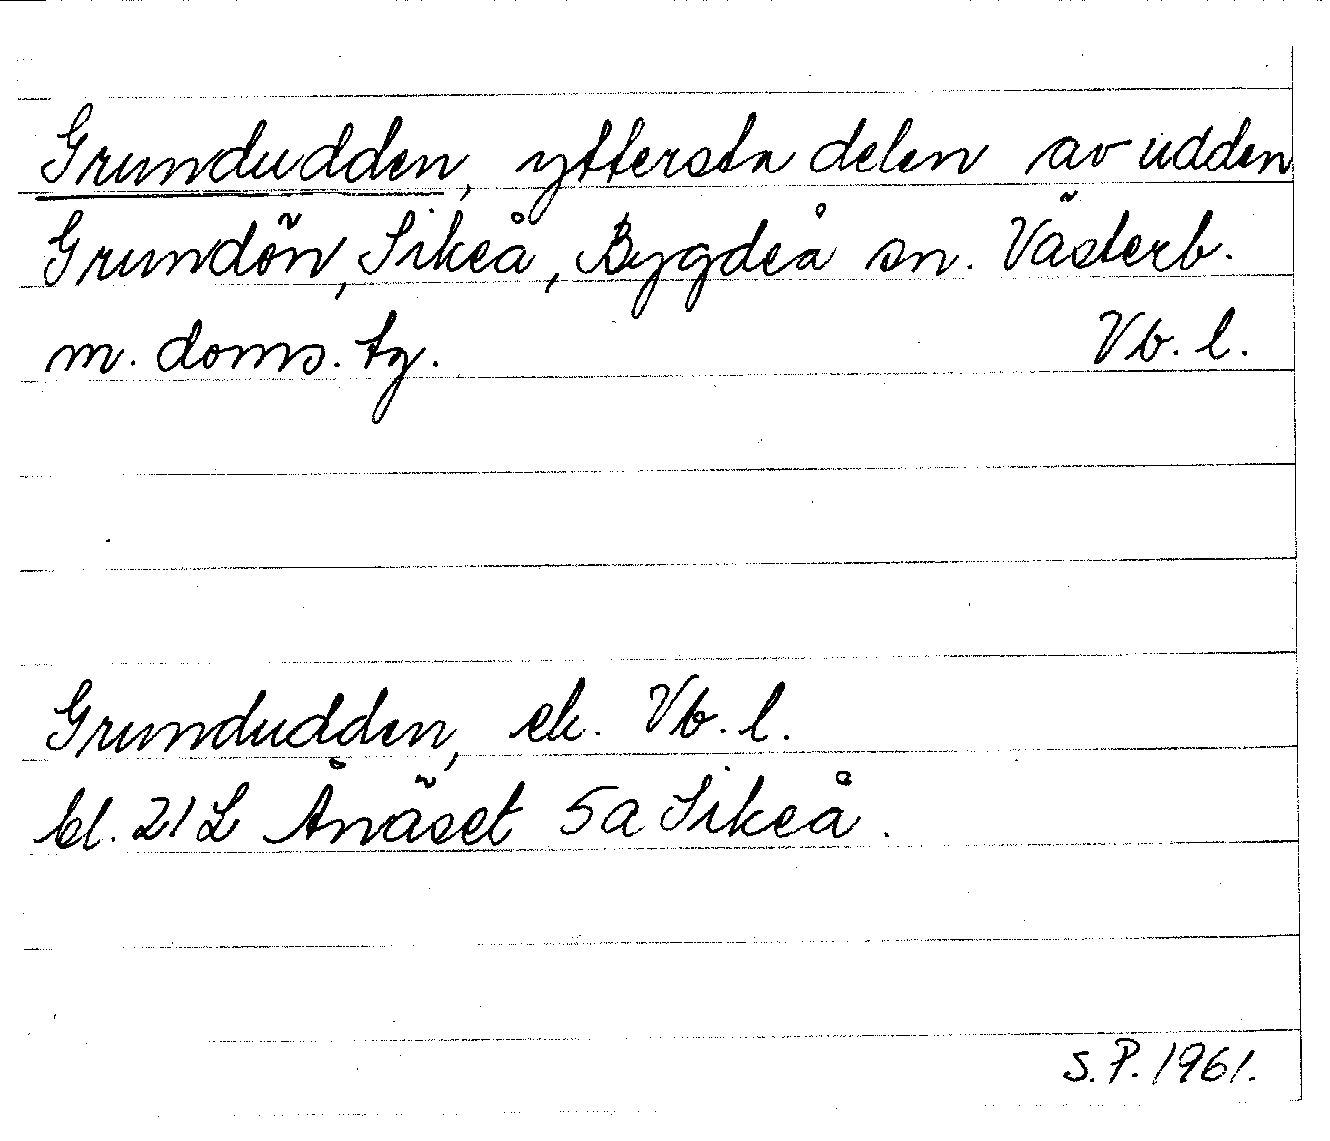 Grundudden, yttersta delen av udden
Grundön, Sikeå, Bygdeå sn. Västerb.
m. doms. tg. Vb. l.
Grundudden, ek. Vb. l.
bl. 21 L Ånäset 5a Sikeå.
S. P. 1961.